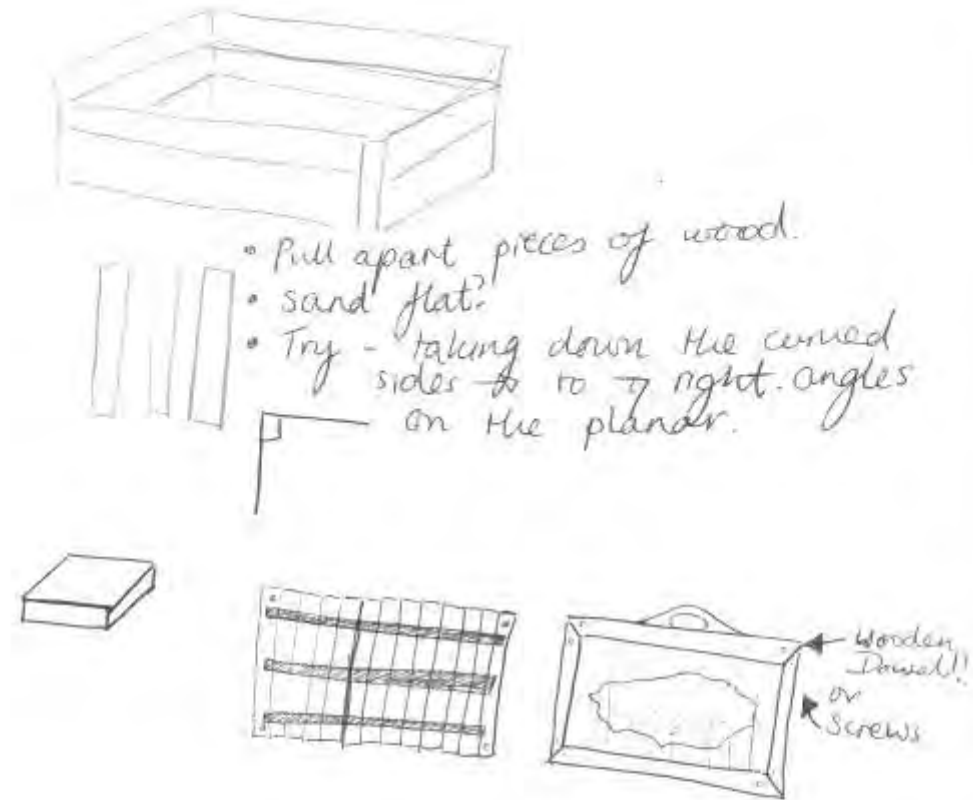 • Pull apart pieces of wood.
• sand flat?
• Try - taking down the curved
sides to right.angles
on the planar.
Wooden
Dowel!!
or
Screws